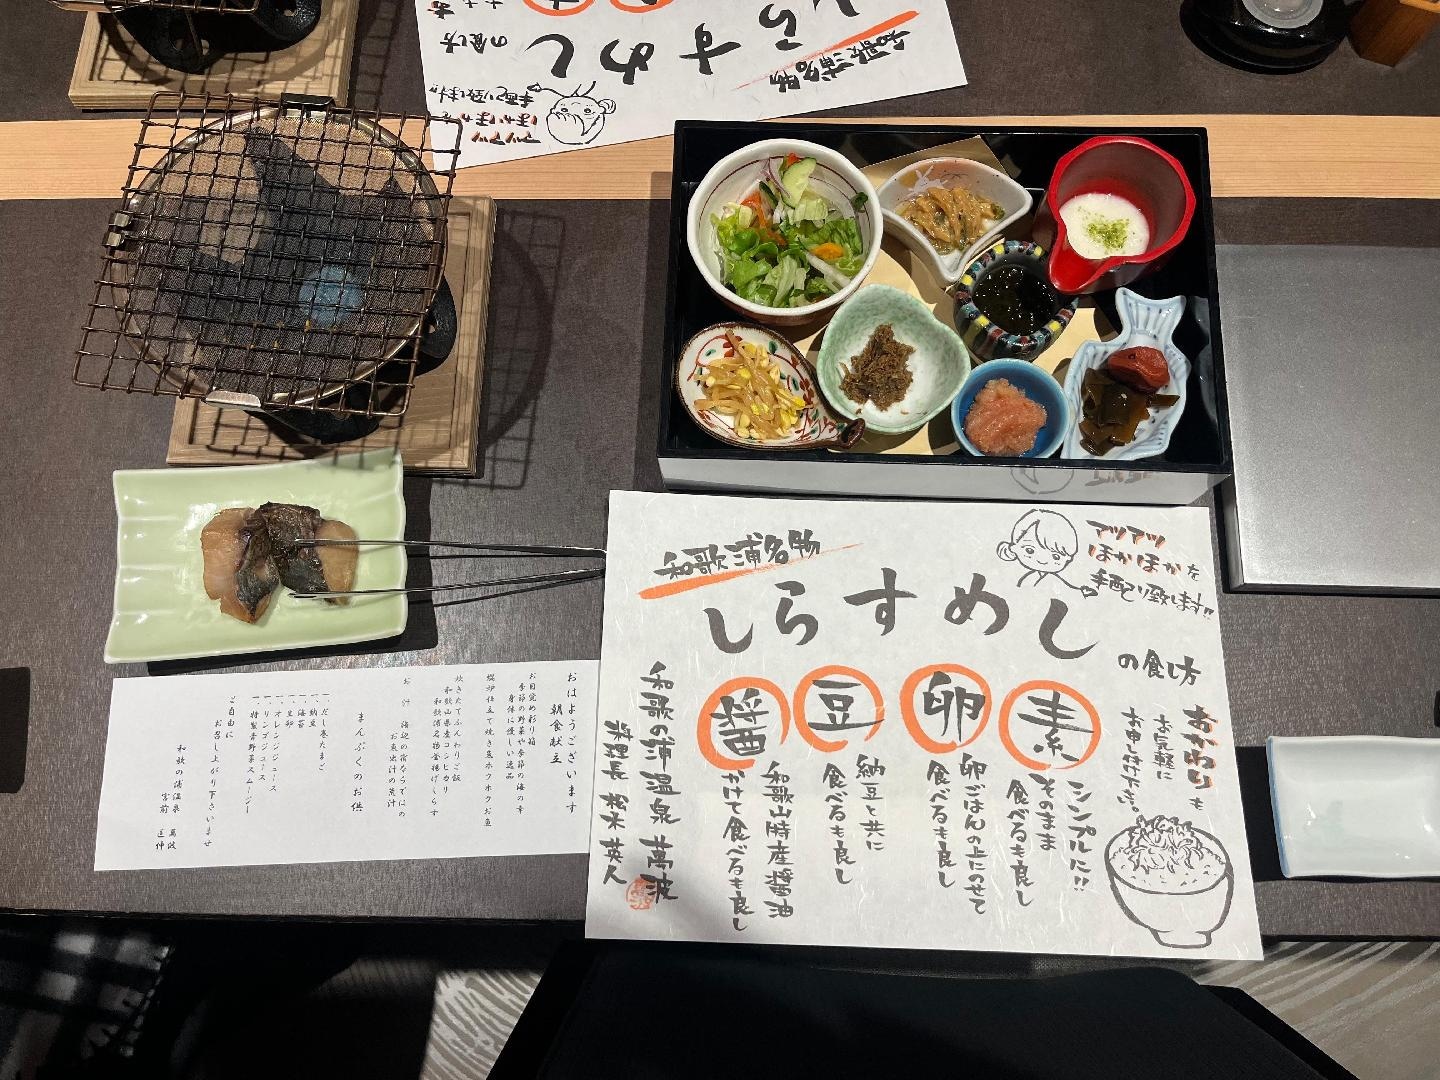 和歌浦名物
しらすめし
の食し方
アツアツ
ほかほかを
手配り致します!!
おかわりも
お気軽に
お申し付け下さい。
素
シンプルに!!
そのまま
食べるも良し
卵
卵ごはんの上にのせて
食べるも良し
豆
納豆と共に
食べるも良し
醤
和歌山特産醤油
かけて食べるも良し
和歌の浦温泉 萬波
料理長 松本 英人
おはようございます
朝食献立
お目覚め彩り箱
季節の野菜や季節の海の幸
身体に優しい逸品
焜炉仕立て焼き魚ホクホクお魚
炊きたてふんわりご飯
和歌山県産コシヒカリ
和歌浦名物釜揚げしらす
お汁 海辺の宿ならではの
お魚出汁の荒汁
まんぷくのお供
一、だし巻たまご
一、納豆
一、海苔
一、生卵
一、オレンジジュース
一、リンゴジュース
一、特製青野菜スムージー
ご自由に
お召し上がり下さいませ
和歌の浦温泉 萬波
和歌浦名物
しらすめし
の食し方
アツアツ
ほかほかを
手配り致します!!